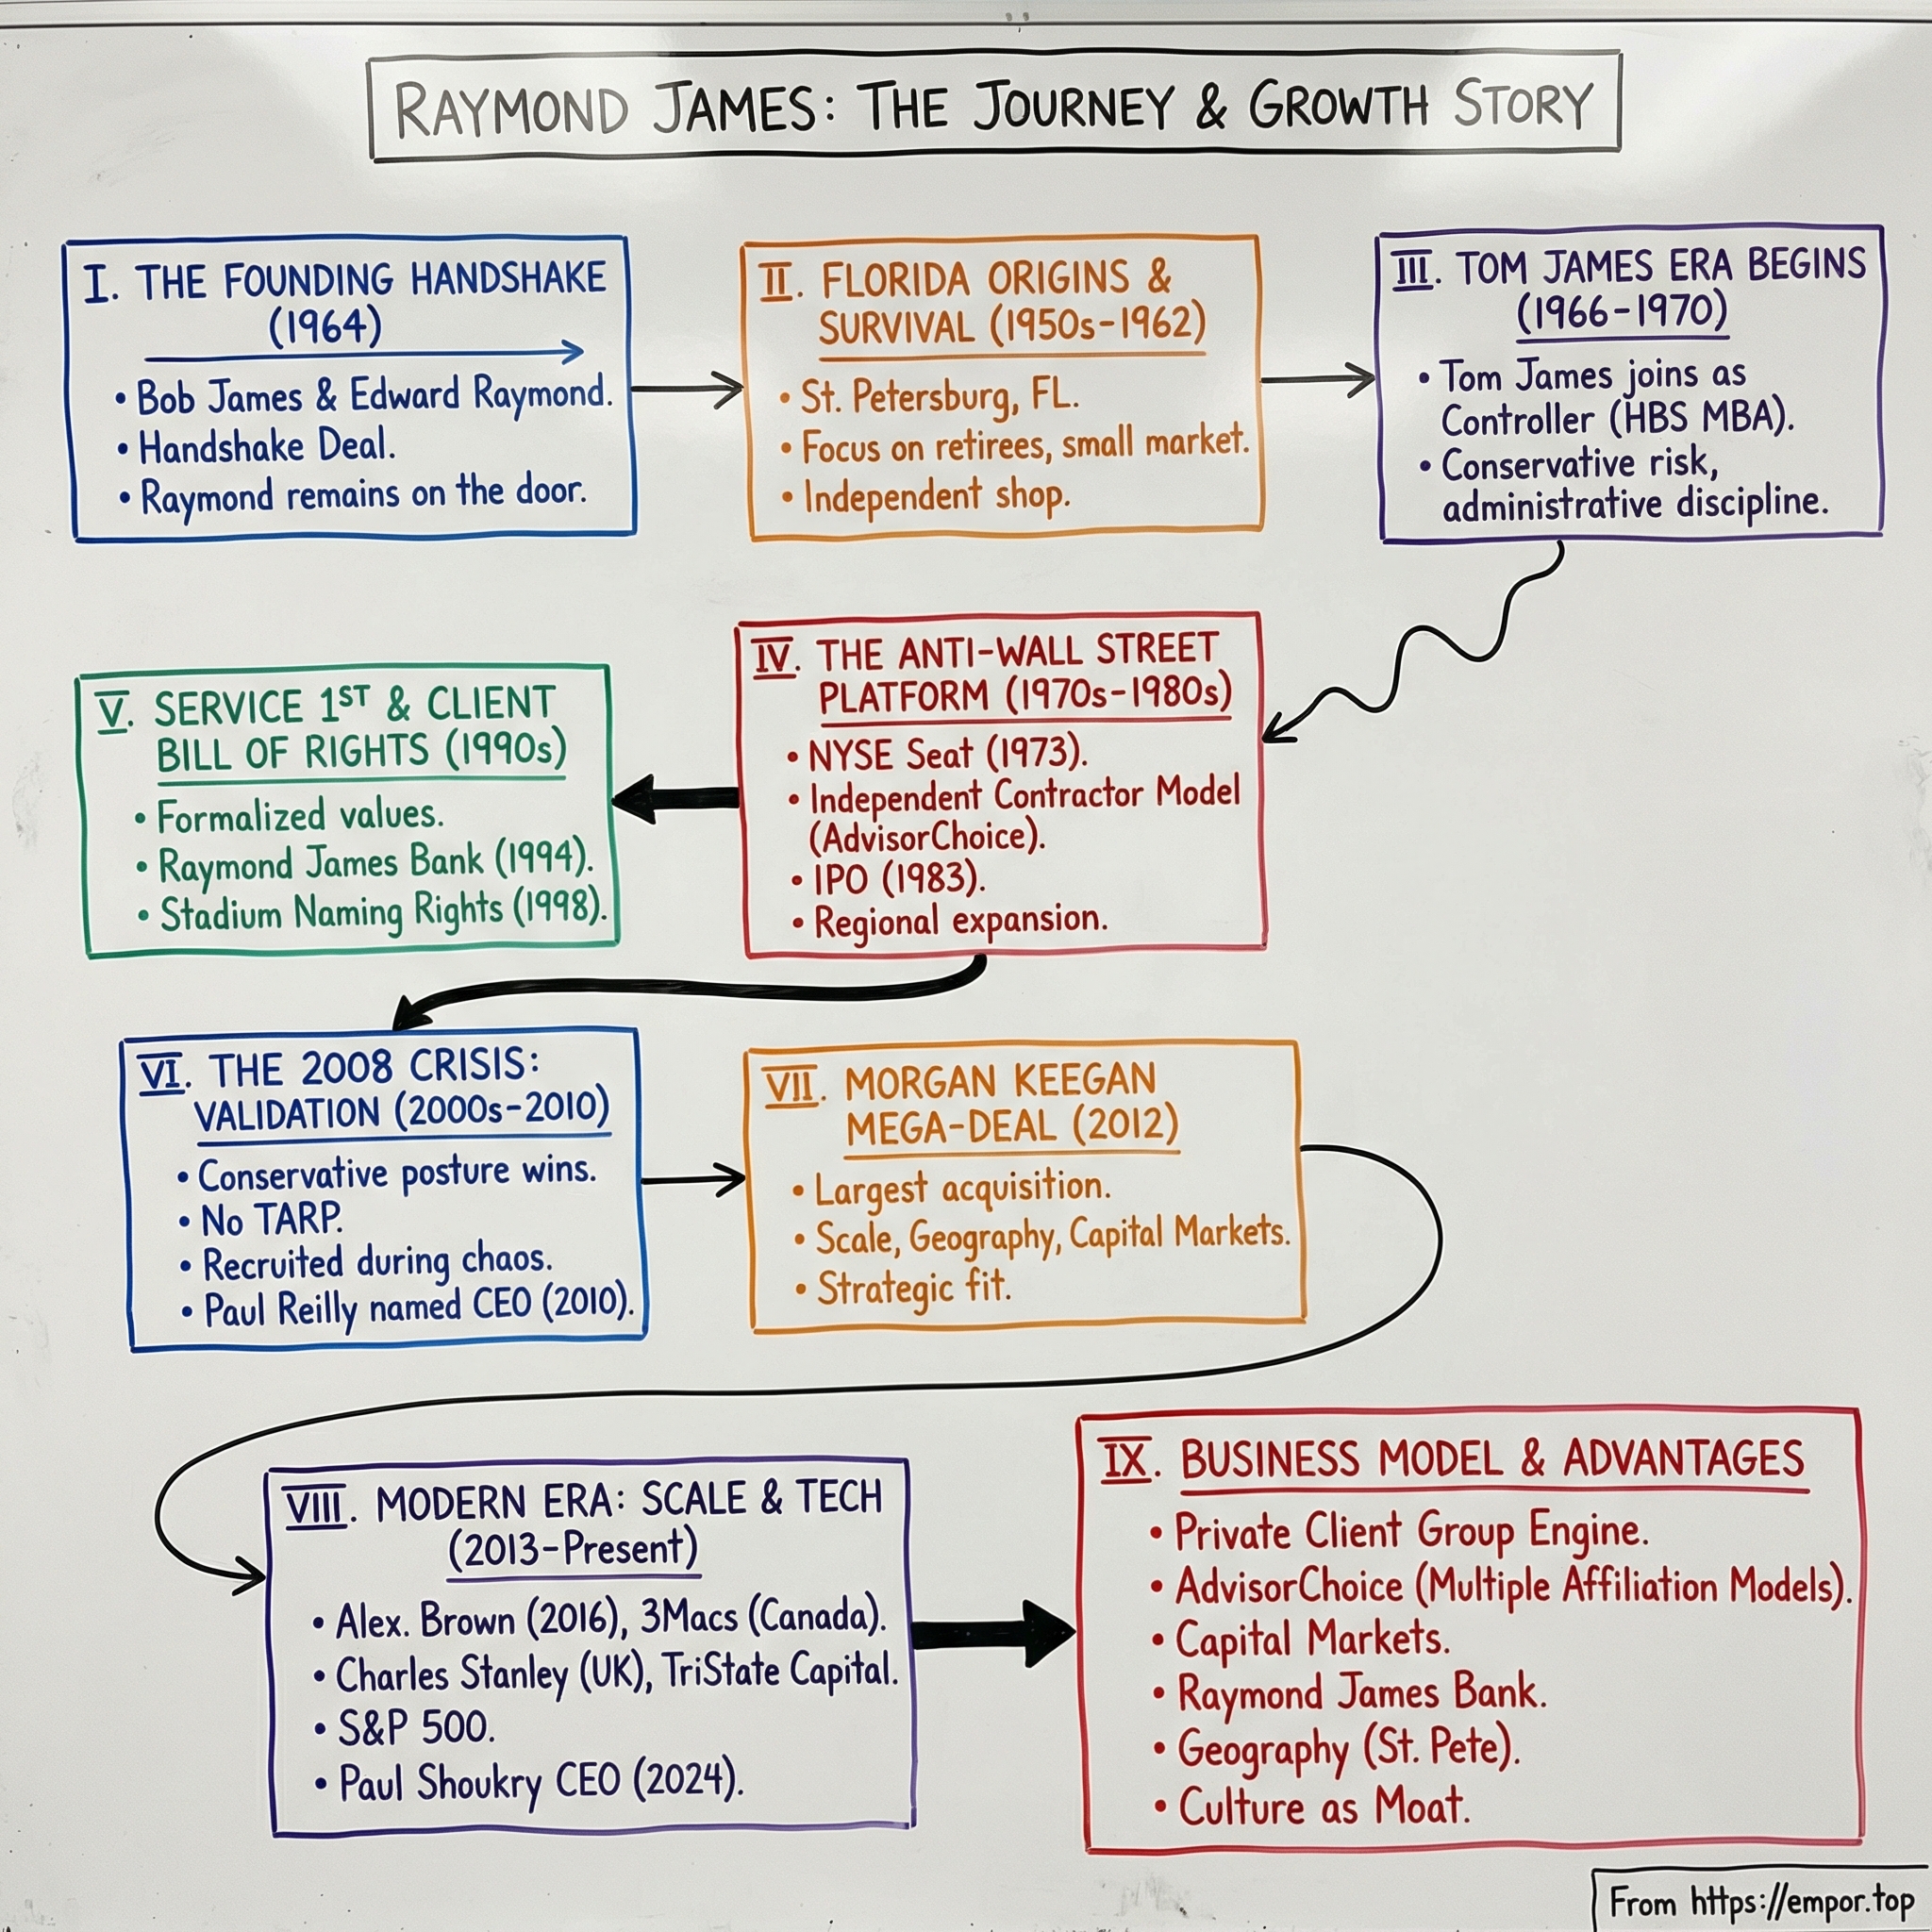 RAYMOND JAMES: THE JOURNEY & GROWTH STORY
I. THE FOUNDING HANDSHAKE
(1964)
• Bob James & Edward Raymond.
• Handshake Deal.
• Raymond remains on the door.
II. FLORIDA ORIGINS &
SURVIVAL (1950s-1962)
• St. Petersburg, FL.
• Focus on retirees, small market.
• Independent shop.
III. TOM JAMES ERA BEGINS
(1966-1970)
• Tom James joins as
Controller (HBS MBA).
• Conservative risk,
administrative discipline.
IV. THE ANTI-WALL STREET
PLATFORM (1970s-1980s)
• NYSE Seat (1973).
• Independent Contractor Model
(AdvisorChoice).
• IPO (1983).
• Regional expansion.
V. SERVICE 1ST & CLIENT
BILL OF RIGHTS (1990s)
• Formalized values.
• Raymond James Bank (1994).
• Stadium Naming Rights (1998).
VI. THE 2008 CRISIS:
VALIDATION (2000s-2010)
• Conservative posture wins.
• No TARP.
• Recruited during chaos.
• Paul Reilly named CEO (2010).
VII. MORGAN KEEGAN
MEGA-DEAL (2012)
• Largest acquisition.
• Scale, Geography, Capital Markets.
• Strategic fit.
VIII. MODERN ERA: SCALE & TECH
(2013-Present)
• Alex. Brown (2016), 3Macs (Canada).
• Charles Stanley (UK), TriState Capital.
• S&P 500.
• Paul Shoukry CEO (2024).
IX. BUSINESS MODEL & ADVANTAGES
• Private Client Group Engine.
• AdvisorChoice (Multiple Affiliation Models).
• Capital Markets.
• Raymond James Bank.
• Geography (St. Pete).
• Culture as Moat.
From https://empor.top